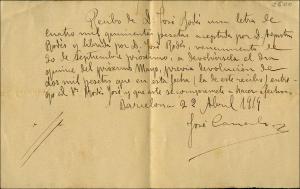 Recibo de D. José Rodés una letra de
cuatro mil quinientas pesetas aceptada por Agustín
Rodés y librada por D. José Rodés, vencimiento de
30 de Septiembre próximo, a devolvérsela el día
quince del próximo Mayo, previa devolución de
dos mil pesetas que en esta fecha
el Sr. Rodés José y que este se compromete a hacer efectivo
Barcelona 22 Abril 1919
José